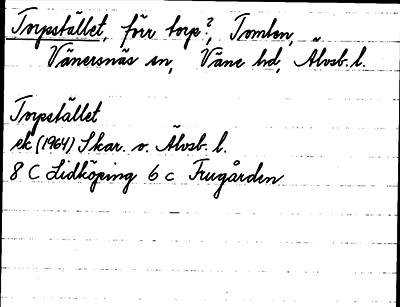 Torpstället, förr torp?, Tomten,
Vänersnäs sn, Väne hd, Älvsb. l.
Torpstället
ek (1964) Skar. o. Älvsb. l.
8 C Lidköping 6 c Frugården